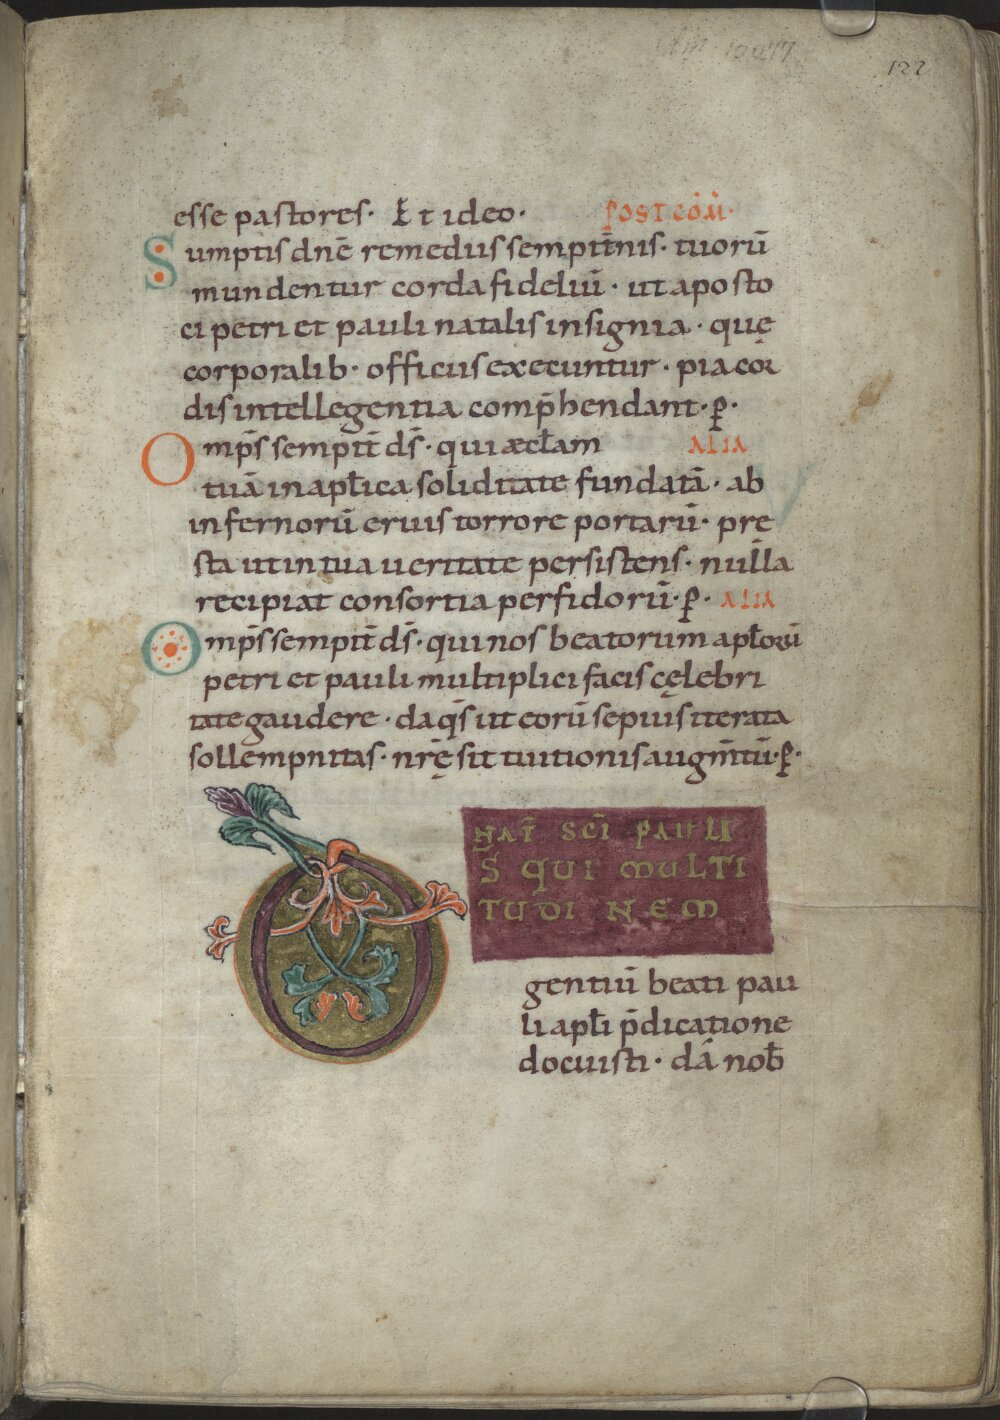 122
esse pastores· Et ideo· POSTCOM̄·
Sumptis dn̄e remediis sempit̄nis· tuorū
mundentur corda fideliū· ut aposto
ci petri et pauli natalis insignia· quę
corporalib· officiis execuntur· pia cor
dis intellegentia comp̄hendant· p̱·
Omp̄s sempit̄ ds̄· qui æcl̄am ALIA
tuā in apl̄ica soliditate fundatā· ab
infernorū eruis torrore portarū· pre
sta ut in tua ueritate persistens· nulla
recipiat consortia perfidorū· p̱· ALIA
Omp̄s sempit̄ ds̄· qui nos beatorum apl̄orū
petri et pauli multiplici facis cęlebri
tate gaudere· da qs̄ ut eorū sepius iterata
sollempnitas· nrę̄ sit tuitionis augm̄tū· p̱·
NAT̄ SCĪ PAULI
DS QUI MULTI
TUDINEM
gentiū beati pau
li apl̄i p̄dicatione
docuisti· dā nob̄